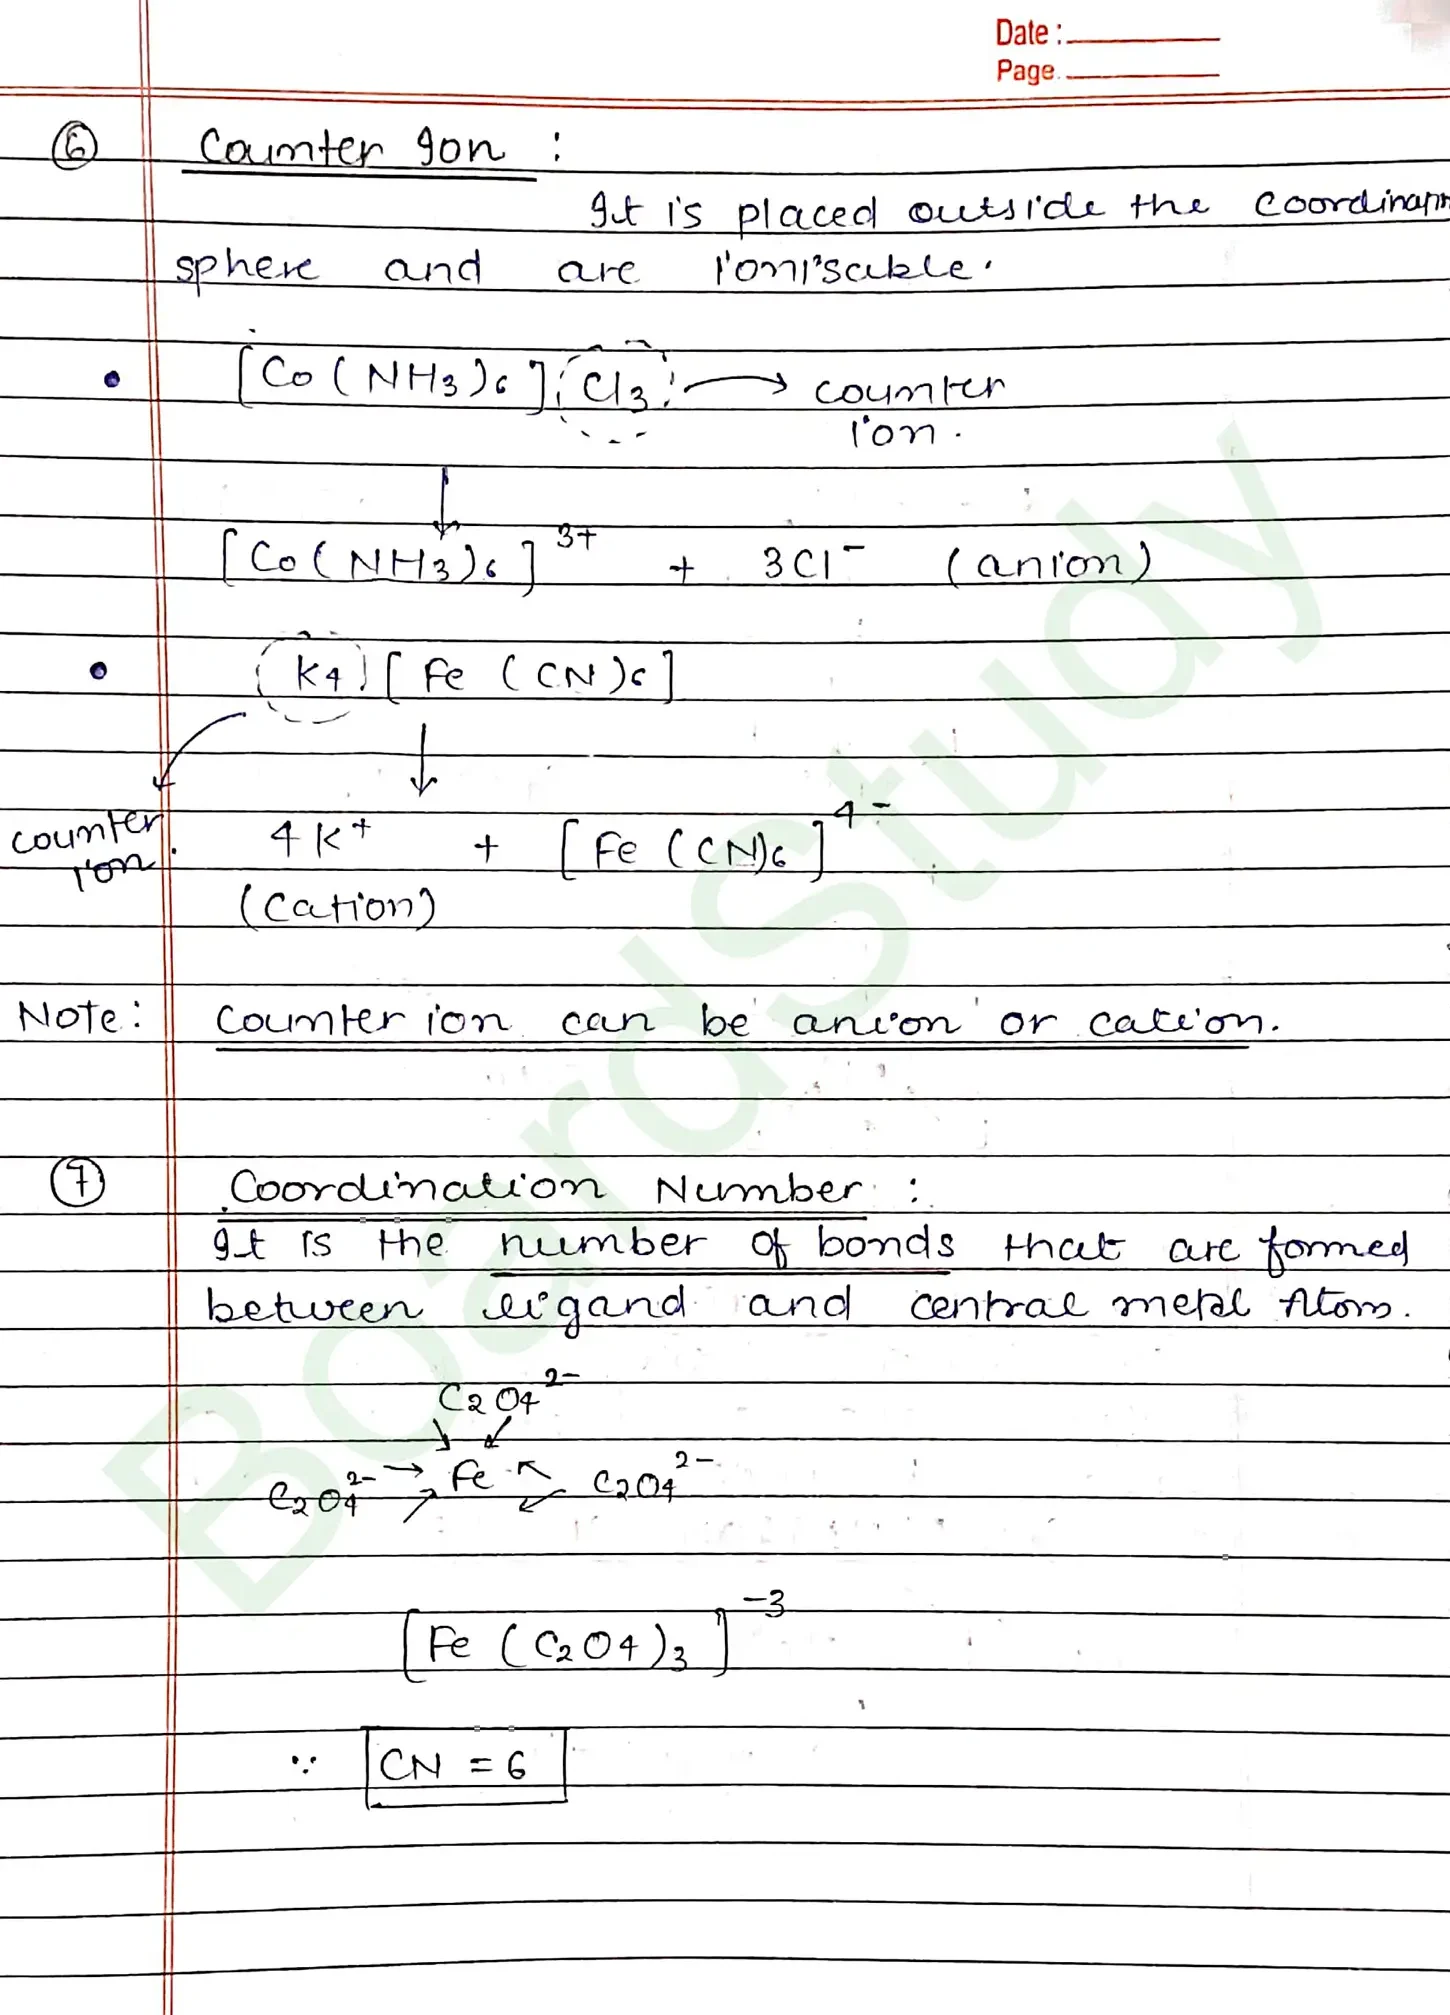 Date :
Page.
⑥ Counter Ion :
It is placed outside the coordination
sphere and are ionisable.
• [Co(NH3)6] Cl3 → counter
ion.
↓
[Co(NH3)6]³⁺ + 3Cl⁻ (anion)
• K4 [Fe (CN)6]
↓
counter
ion.
4K⁺ + [Fe (CN)6]⁴⁻
(Cation)
Note: Counter ion can be anion or cation.
⑦ Coordination Number :
It is the number of bonds that are formed
between ligand and central metal Atom.
C2O4²⁻
C2O4²⁻ → Fe C2O4²⁻
[Fe (C2O4)3]⁻³
∵ CN = 6
BoardStudy